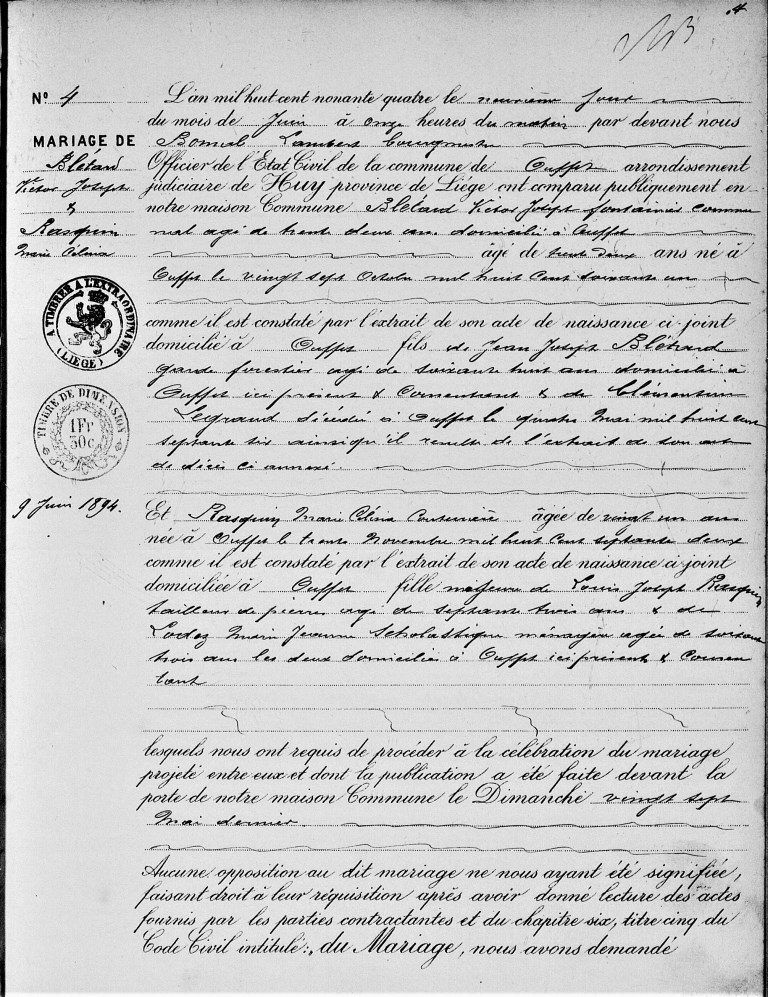 4
Nº 4
MARIAGE DE
Blétard
Victor Joseph
&
Rasquin
Marie Célina
A TIMBRER A L'EXTRAORDINAIRE
(LIEGE)
TIMBRE DE DIMENSION
1 Fr
50c
9 Juin 1894.
L'an mil huit cent nonante quatre le neuvième jour
du mois de Juin à onze heures du matin par devant nous
Bomal Lambert bourgmestre
Officier de l'Etat Civil de la commune de Ouffet arrondissement
judiciaire de Huy province de Liége ont comparu publiquement en
notre maison Commune Blétard Victor Joseph fontainier commu
nal agé de trente deux ans domicilié à Ouffet
âgé de trente deux ans né à
Ouffet le vingt sept Octobre mil huit cent soixante un
comme il est constaté par l'extrait de son acte de naissance ci-joint
domicilié à Ouffet fils de Jean Joseph Blétard
garde forestier agé de soixante huit ans domicilié à
Ouffet ici présent & consentant & de Clémentine
Legrand décédée à Ouffet le quatre Mai mil huit cent
septante six ainsi qu'il résulte de l'extrait de son acte
de décès ci annexé.
Et Rasquin Marie Célina Couturière âgée de vingt un ans
née à Ouffet le trente Novembre mil huit cent septante deux
comme il est constaté par l'extrait de son acte de naissance ci-joint
domiciliée à Ouffet fille majeure de Louis Joseph Rasquin
tailleur de pierres agé de septante trois ans & de
Lodez Marie Jeanne Scholastique ménagère agée de soixante
trois ans les deux domiciliés à Ouffet ici présents & consen
tant
lesquels nous ont requis de procéder à la célébration du mariage
projeté entre eux et dont la publication a été faite devant la
porte de notre maison Commune le Dimanche vingt sept
Mai dernier.
Aucune opposition au dit mariage ne nous ayant été signifiée,
faisant droit à leur réquisition après avoir donné lecture des actes
fournis par les parties contractantes et du chapitre six, titre cinq du
Code Civil intitulé: du Mariage, nous avons demandé